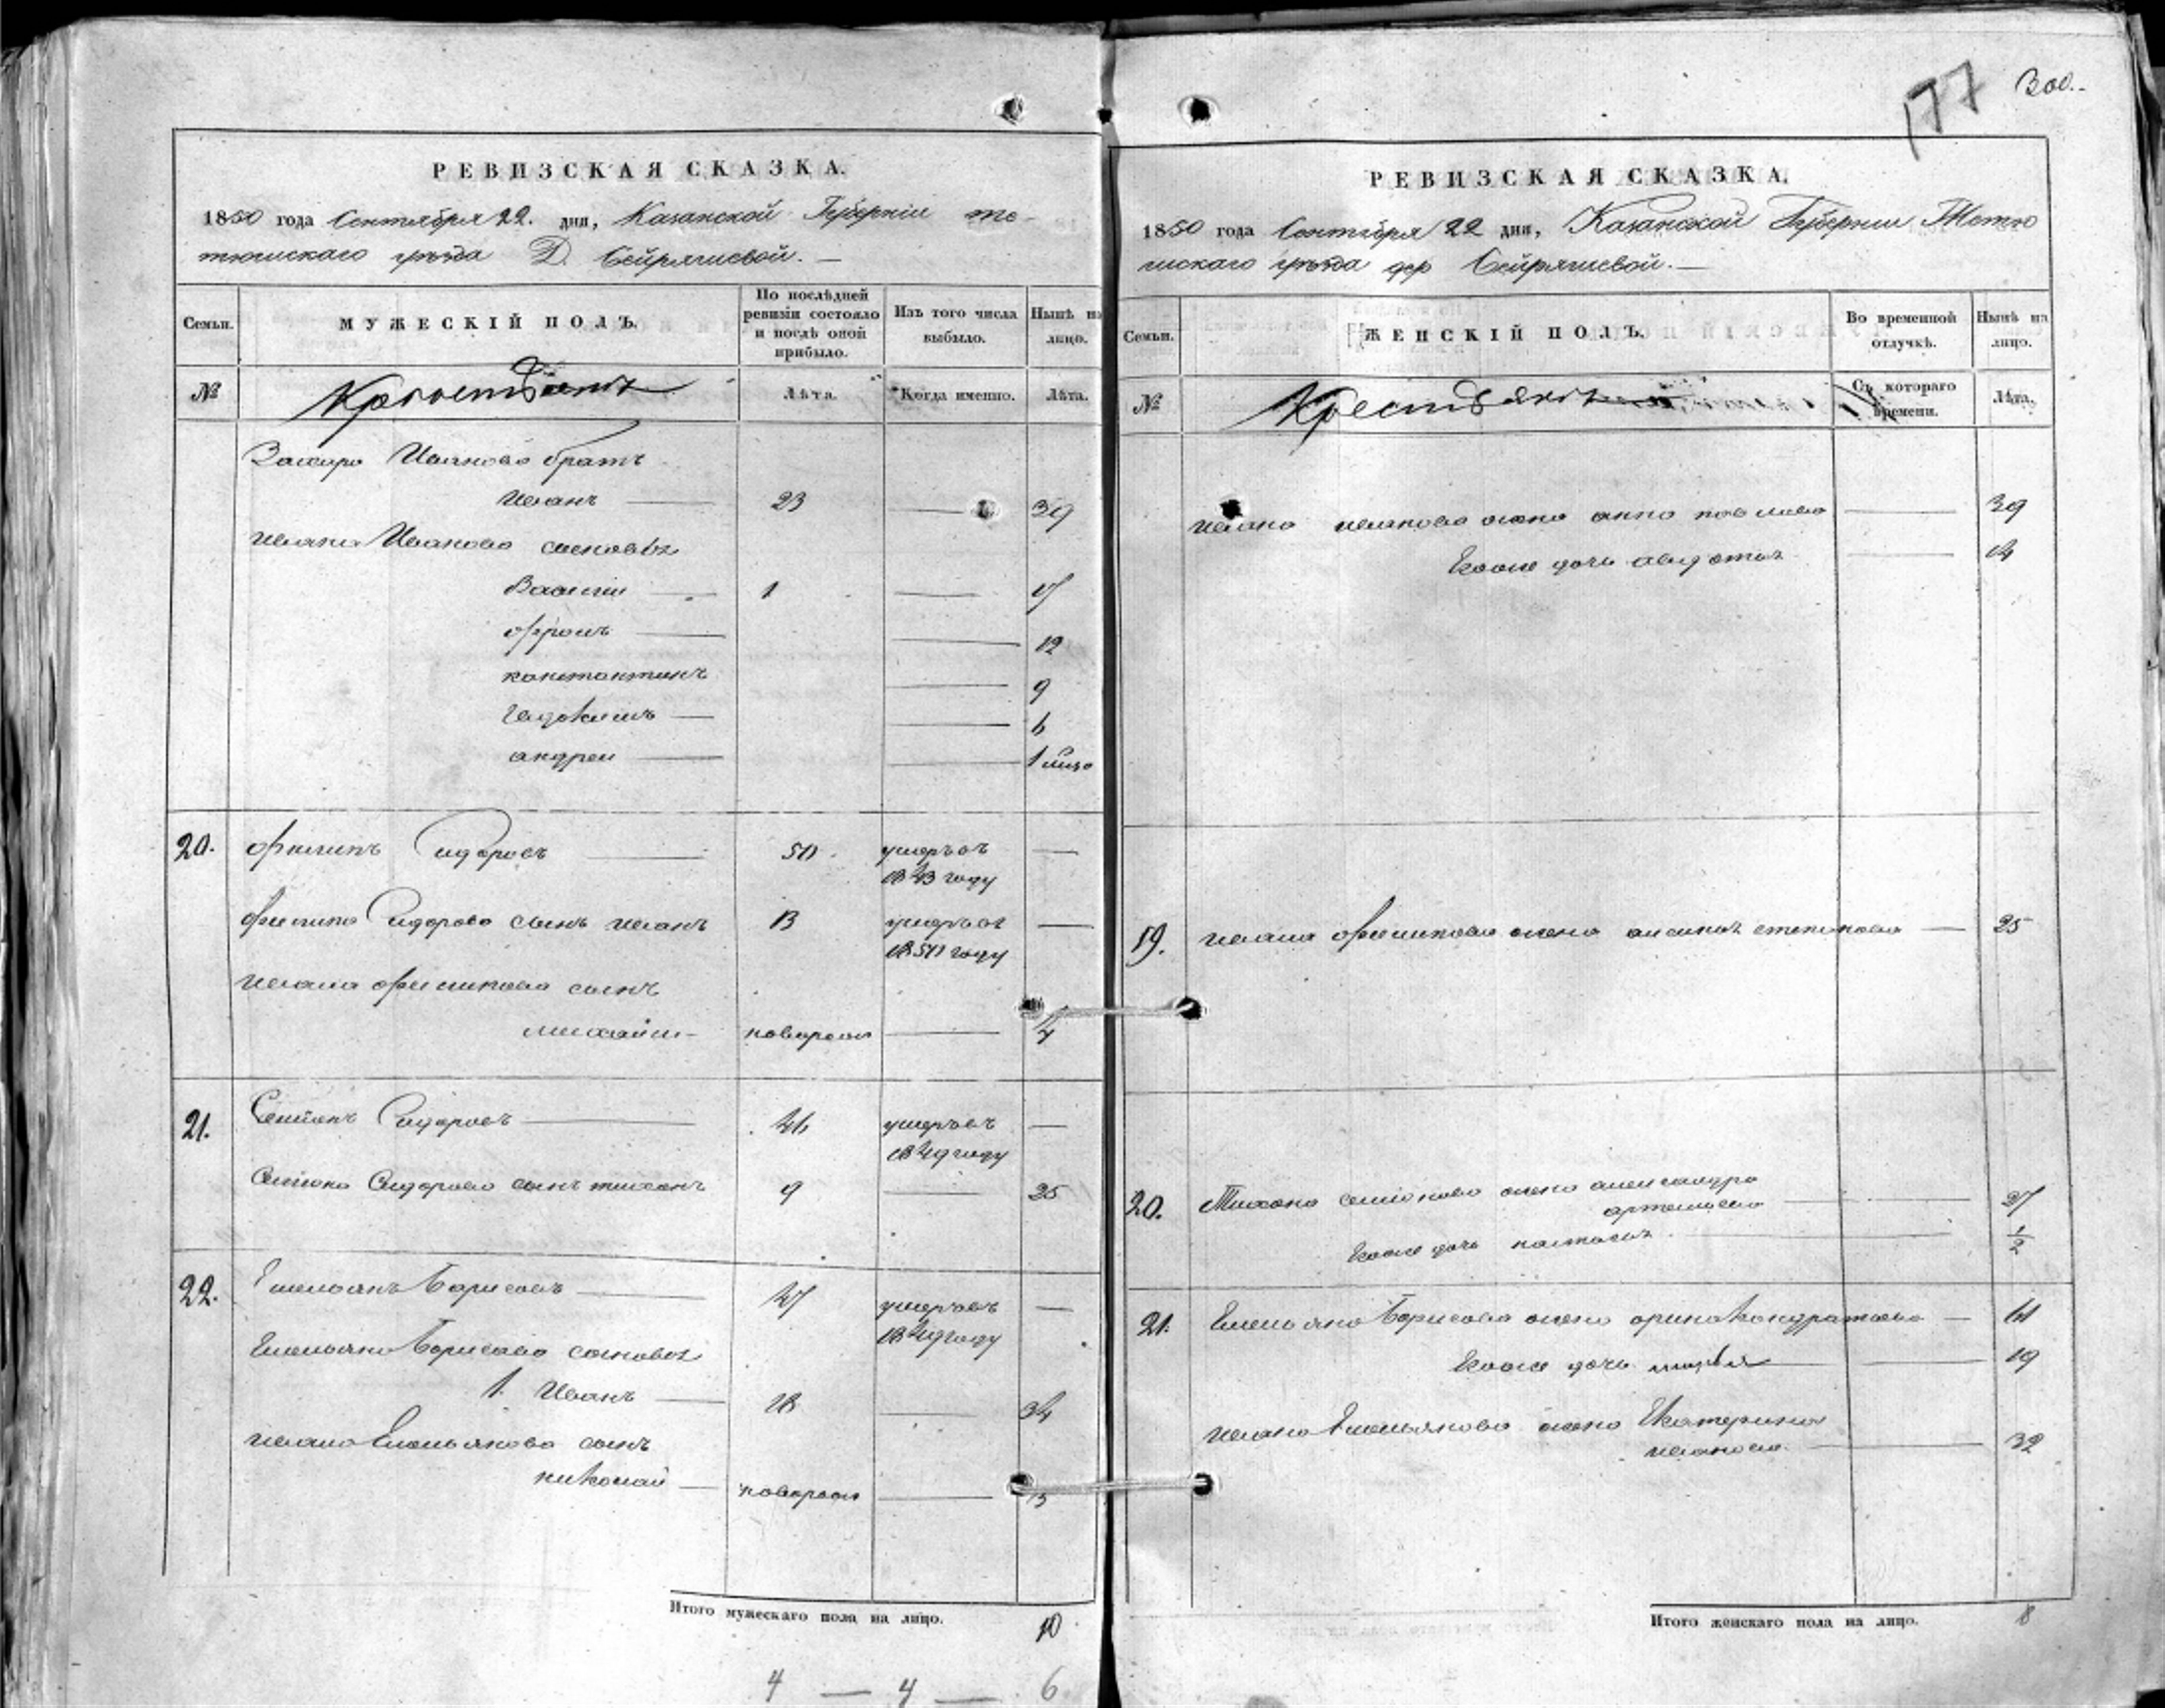 177 300.
РЕВИЗСКАЯ СКАЗКА.
1850 года Сентября 22. дня, Казанской Губерніи те-
тюшскаго уѣзда Д. Сейряшевой.
Семьи. МУЖЕСКІЙ ПОЛЪ. По послѣдней ревизіи состояло и послѣ оной прибыло. Изъ того числа выбыло. Нынѣ на лицо.
№ Крестьянъ Лѣта. Когда именно. Лѣта.
Иванова братъ
Иванъ — 23 — 39
Ивана Иванова сыновья
Василии — 1 — 17
— 12
константинъ — 9
Евдокимъ — — 6
андреи — — 1
20. филипъ Сидоровъ — 50 умеръ въ —
1843 году
филипа Сидорова сынъ иванъ 13 умеръ въ —
1850 году
ивана филипова сынъ
михайла — новорож —
21. Семіонъ Сидоровъ — 46 умеръ въ —
1849 году
Семіона Сидорова сынъ тихонъ 9 — 25
22. Емельянъ Борисовъ — 47 умеръ въ —
1849 году
Емельяна Борисова сыновья
1. Иванъ — 18 — 34
ивана Емельянова сынъ
николай — новорож —
Итого мужескаго пола на лицо. 10
4 — 4 — 6
РЕВИЗСКАЯ СКАЗКА.
1850 года Сентября 22 дня, Казанской Губерніи Тетю
шскаго уѣзда дер Сейряшевой.
Семьи. ЖЕНСКІЙ ПОЛЪ. Во временной отлучкѣ. Нынѣ на лицо.
№ Крестьянъ Съ котораго времени. Лѣта.
ивана иванова жена анна павлова — 39
Ееже дочь авдотья — 14
19. ивана филипова жена аксинья степанова — 25
20. Тихона семіонова жена александра
артемьева — 27
Ееже дочь настасья — 1/2
21. Емельяна Борисова жена орина Кондратьева — 61
Ееже дочь марья — 19
ивана Емельянова жена Екатерина
иванова — 32
Итого женскаго пола на лицо. 8